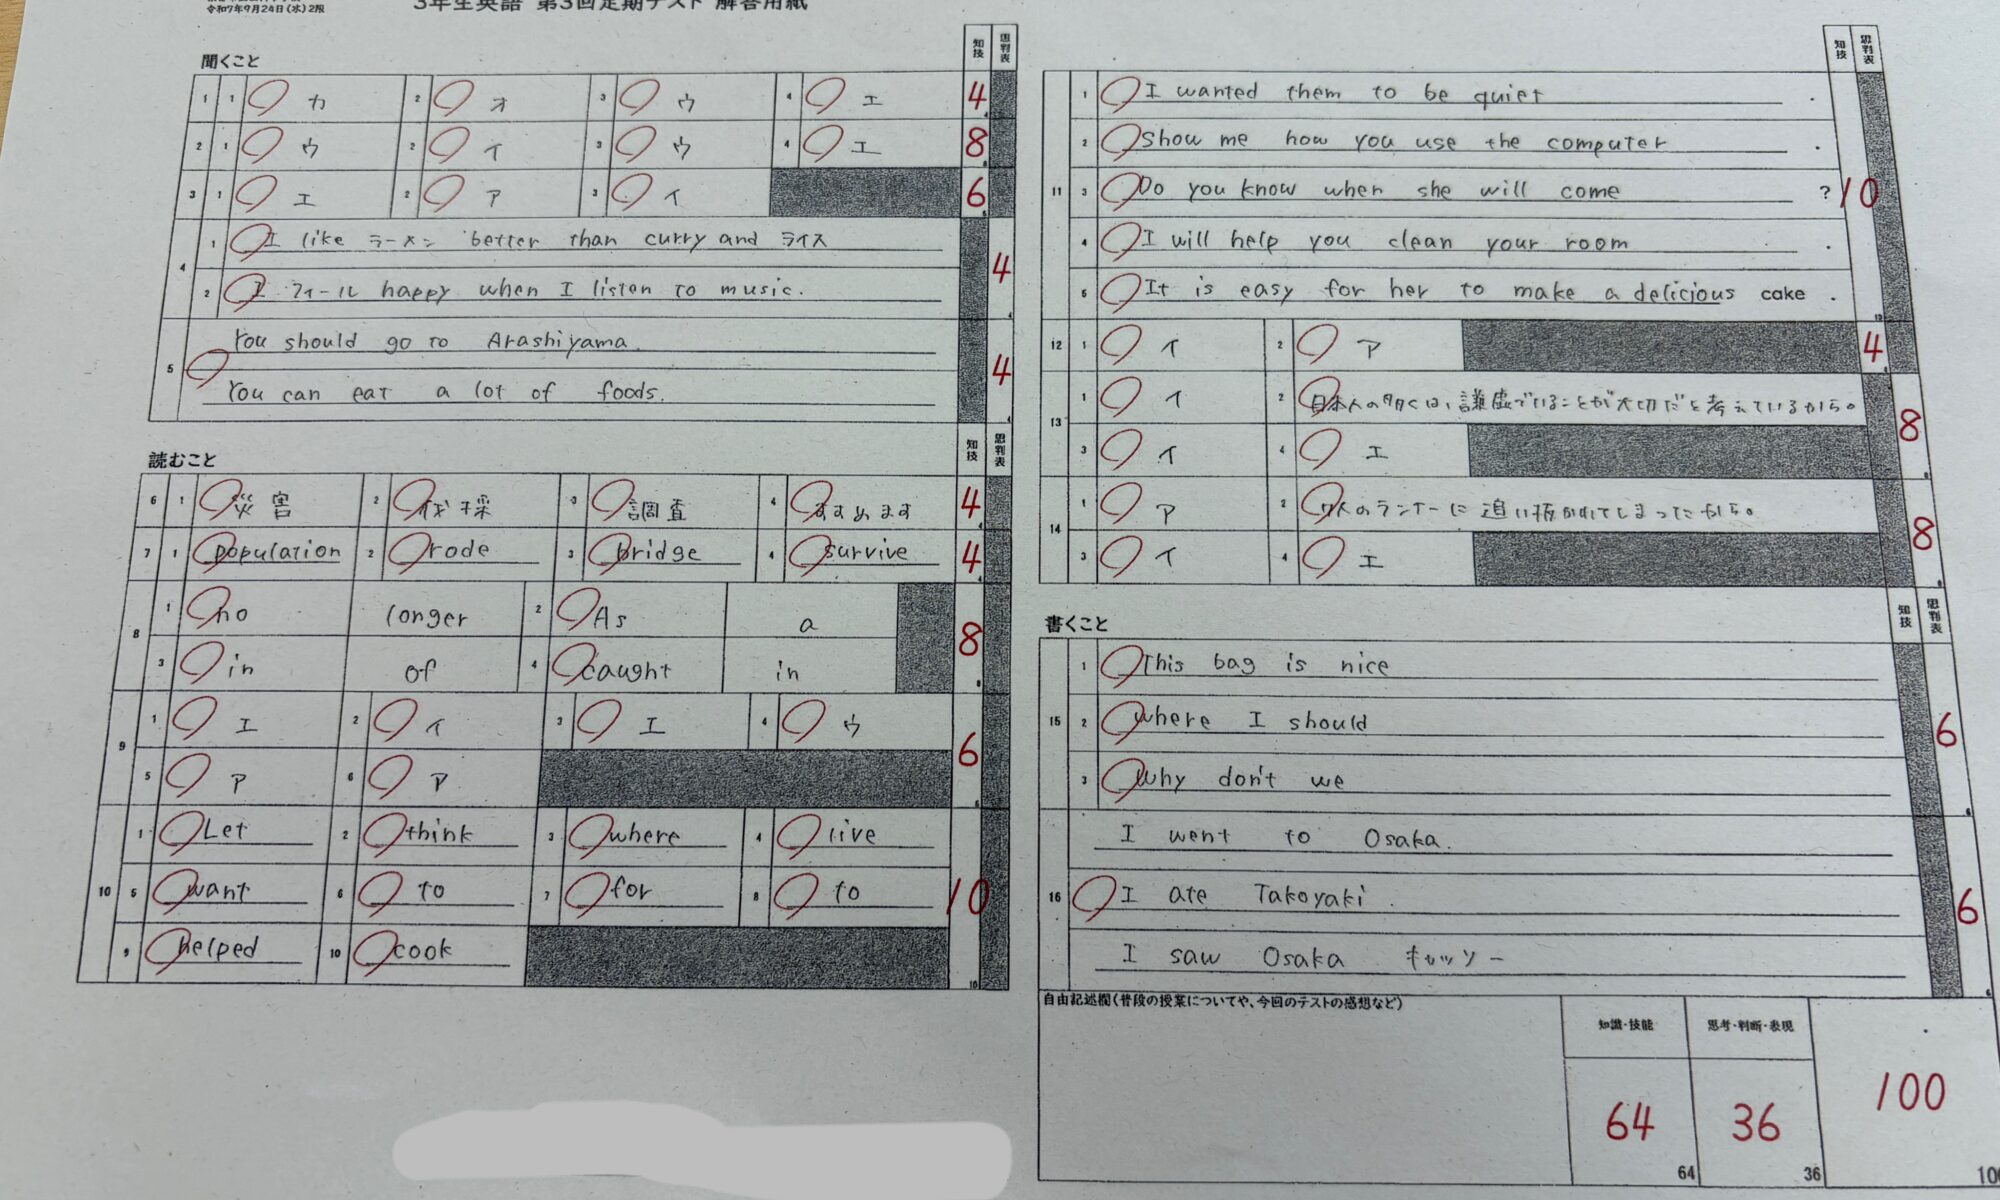 令和7年9月24日(水)2限
3年生英語 第3回定期テスト 解答用紙
聞くこと
知技 思判表
1 1 カ 2 オ 3 ウ 4 エ 4
2 1 ウ 2 イ 3 ウ 4 エ 8
3 1 エ 2 ア 3 イ 6
4 1 I like ラーメン better than curry and ライス
2 I フィール happy when I listen to music. 4
You should go to Arashiyama.
5 4
You can eat a lot of foods.
読むこと
知技 思判表
6 1 災害 2 伐採 3 調査 4 すすめます 4
7 1 population 2 rode 3 bridge 4 survive 4
8 1 no longer 2 As a
3 in of 4 caught in 8
9 1 エ 2 イ 3 エ 4 ウ
5 ア 6 ア 6
10 1 Let 2 think 3 where 4 live
5 want 6 to 7 for 8 to 10
9 helped 10 cook
知技 思判表
11 1 I wanted them to be quiet .
2 Show me how you use the computer .
3 Do you know when she will come ? 10
4 I will help you clean your room .
5 It is easy for her to make a delicious cake .
12 1 イ 2 ア 4
13 1 イ 2 日本人の多くは、謙虚でいることが大切だと考えているから。
3 イ 4 エ 8
14 1 ア 2 7人のランナーに追い抜かれてしまったから。
3 イ 4 エ 8
書くこと
知技 思判表
15 1 This bag is nice
2 where I should 6
3 Why don't we
I went to Osaka.
16 I ate Takoyaki. 6
I saw Osaka キャッソー
自由記述欄(普段の授業についてや、今回のテストの感想など)
知識・技能 思考・判断・表現
64 36 100
64 36 100